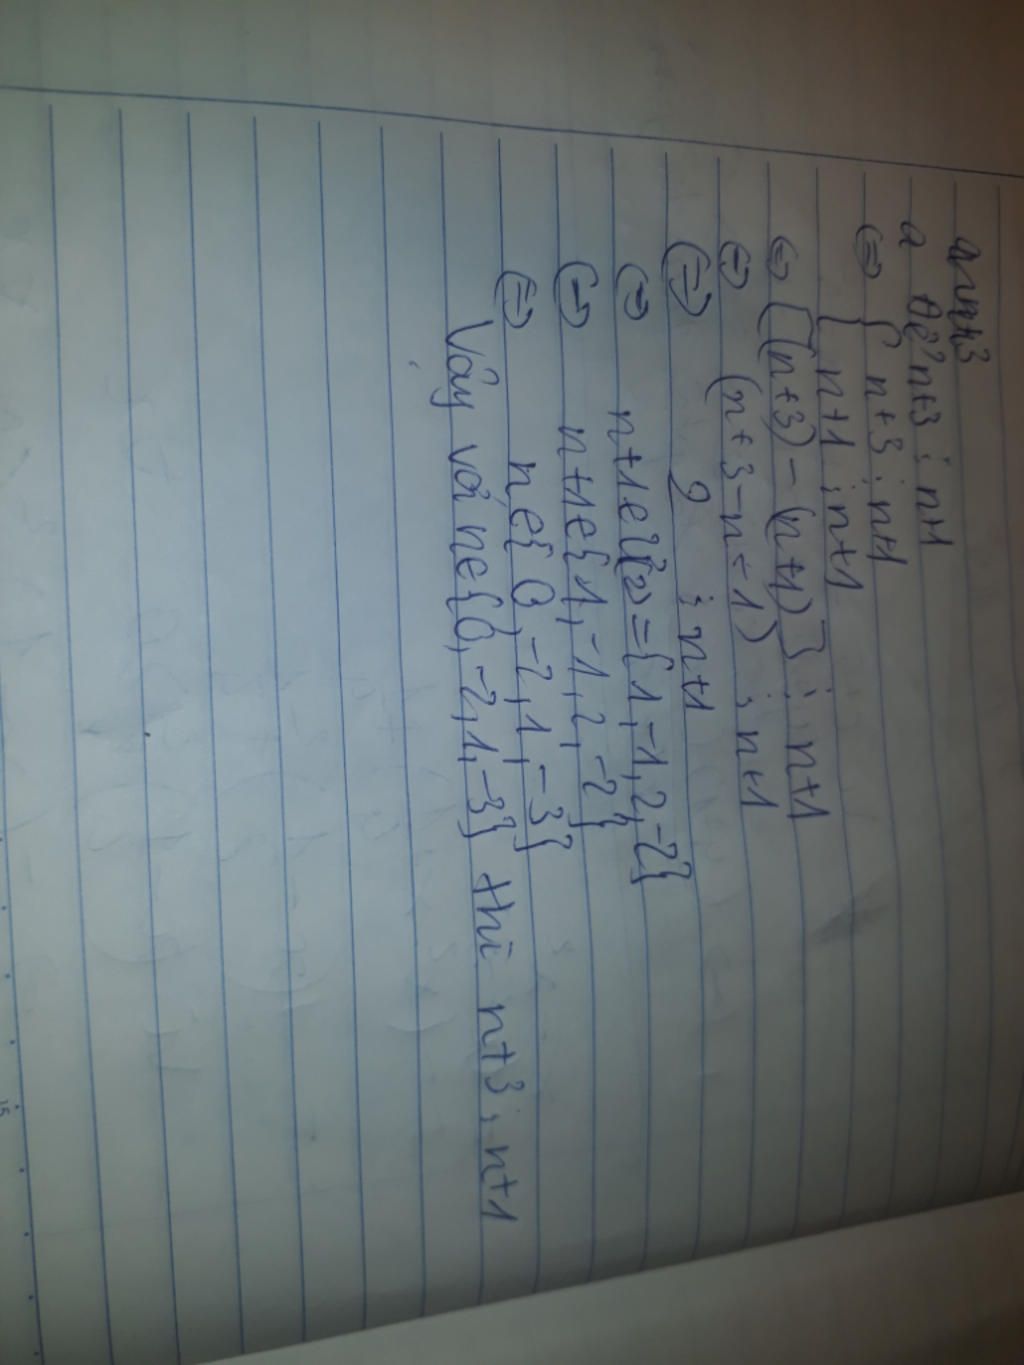 a
Để n+3 ⋮ n+1
⇔ { n+3 ⋮ n+1
{ n+1 ⋮ n+1
⇔ [(n+3) - (n+1)] ⋮ n+1
⇔ (n+3-n-1) ⋮ n+1
⇔ 2 ⋮ n+1
⇔ n+1∈Ư(2)={1,-1,2,-2}
⇔ n+1∈{1,-1,2,-2}
⇔ n∈{0,-2,1,-3}
Vậy với n∈{0,-2,1,-3} thì n+3 ⋮ n+1
15